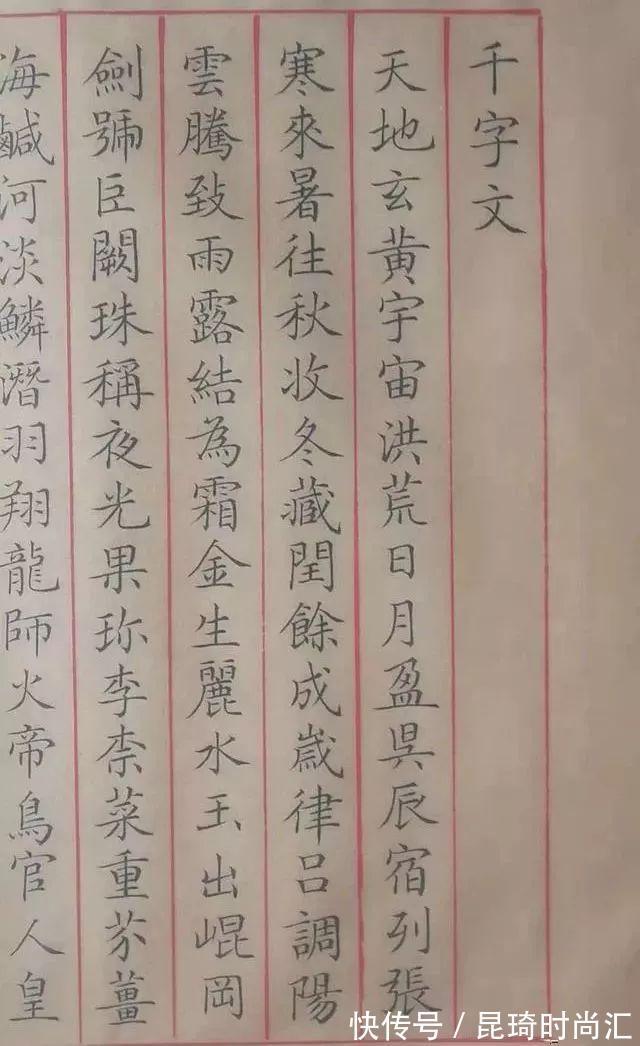 千字文
天地玄黄宇宙洪荒日月盈昃辰宿列張
寒來暑往秋收冬藏閏餘成歲律呂調陽
雲騰致雨露結為霜金生麗水玉出崐岡
劍號巨闕珠稱夜光果珎李柰菜重芥薑
海鹹河淡鱗潛羽翔龍師火帝鳥官人皇
快传号 / 昆琦时尚汇